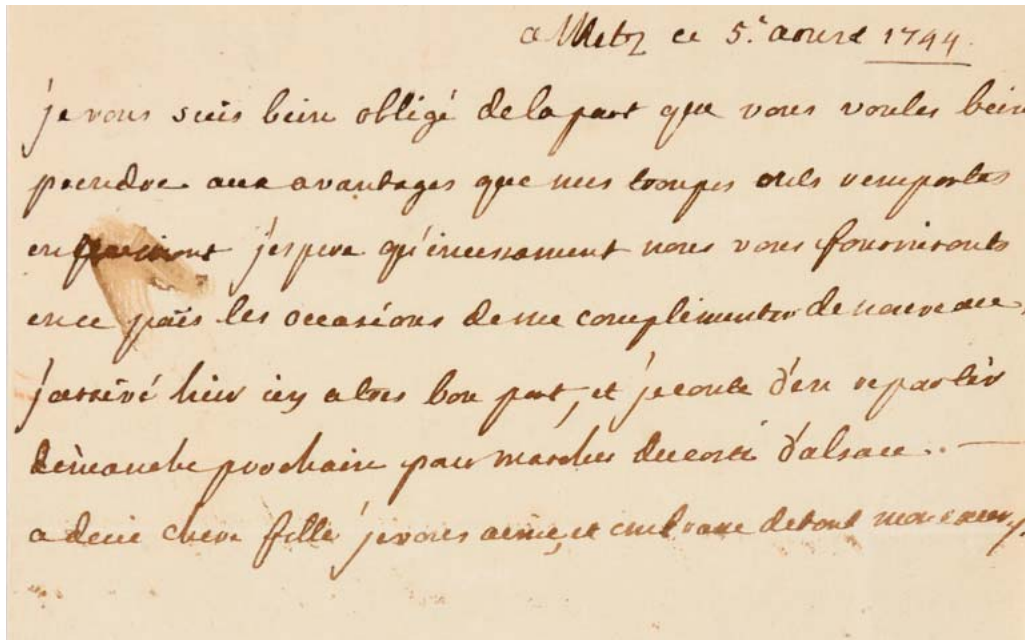 a Metz ce 5.e aoust 1744.
je vous suis bien obligé de la part que vous voules bien
prendre aux avantages que mes troupes onts remportes
en piedmont j'espere qu'incessament nous vous fournironts
en ce païs les occasions de me complimenter de nouveau,
j'arrivé hier icy a tres bon port, et je conte d'en repartir
dimanche prochain pour marcher du costé d'alsace..
adieu chere fille je vous aime, et embrasse de tout mon coeur